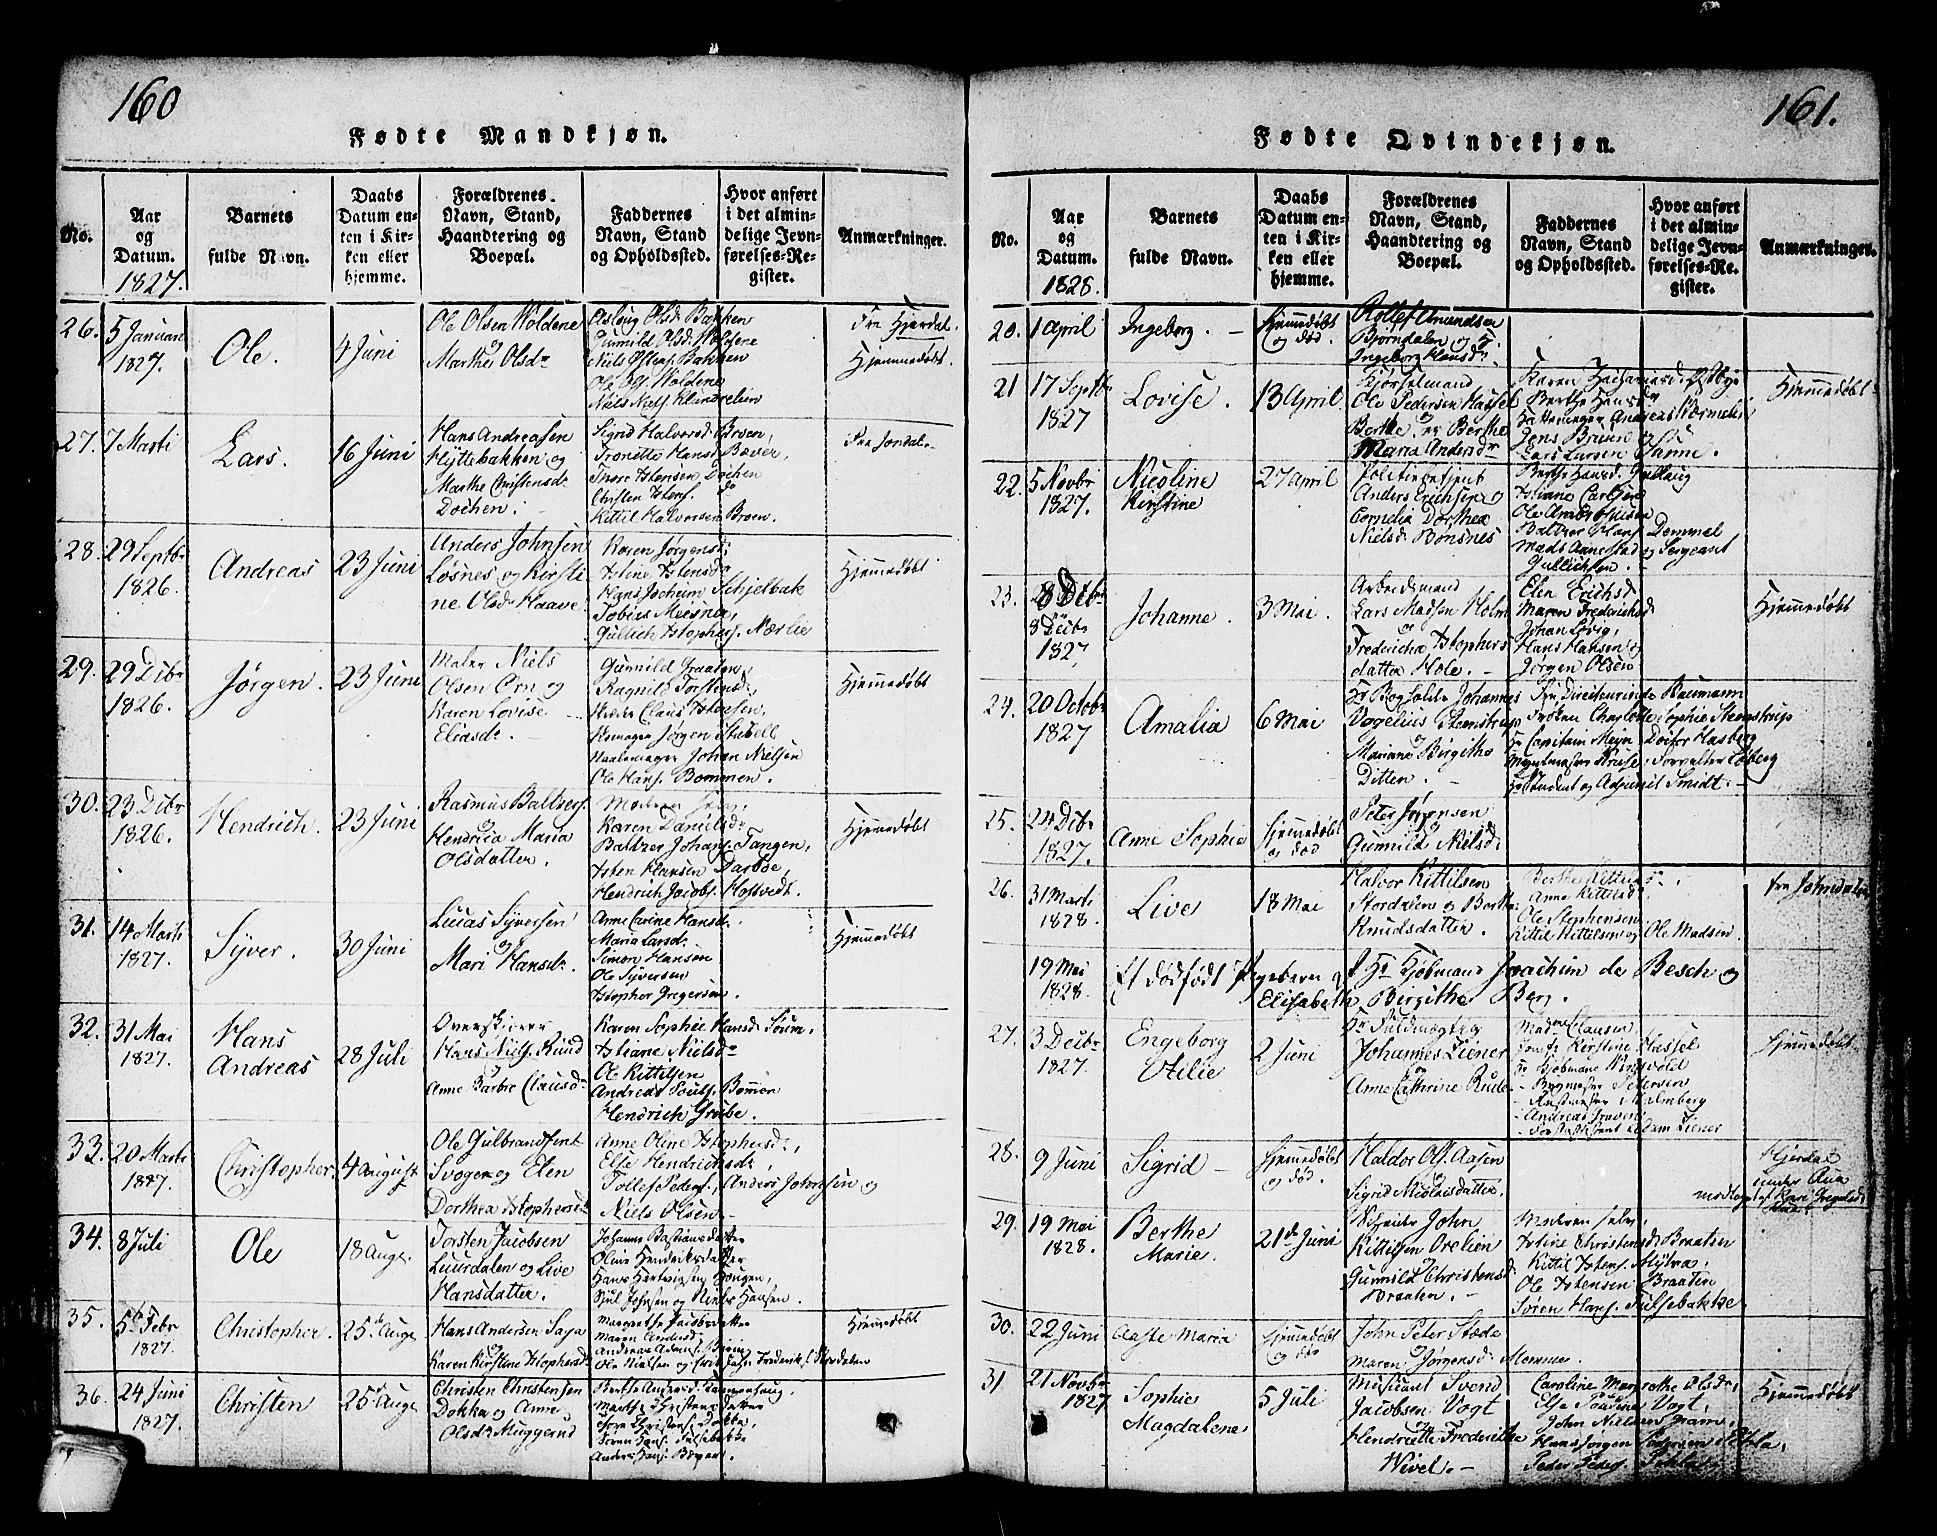 160
Fødte Mandkjøn.
No.
Aar og Datum.
1827.
Barnets fulde Navn.
Daabs Datum enten i Kirken eller hjemme.
Forældrenes Navn, Stand, Haandtering og Boepæl.
Faddernes Navn, Stand og Opholdssted.
Hvor anført i det almindelige Jevnførelses-Register.
Anmærkninger.
26. 5 Januari 1827. Ole. 4 Juni
Ole Olsen Woldene
og
Marthe Olsdr
Aslaug Olsdr Bakken
Gunnild Olsdr Woldene
Niels Olsen Bakken
Ole Ols. Woldene
Niels Niels. Klundrelien
Fra Hjerdal.
Hjemmedøbt
27. 7 Marti Lars. 16 Juni
Hans Andreasen
Hyttebakken og
Marthe Christensdr
Dochen.
Sigrid Halvorsdr Broen,
Tronette Hansdr Bæver,
Thore Istensen Dochen
Christen Istens. do
Kittil Halvorsen Broen.
Fra Jondal.
28. 29 Septbr 1826. Andreas 23 Juni
Anders Johnsen
Løsnes og Kirsti
ne Olsdr Haave
Karen Jørgensdr
Istine Istensdr
Hans Jochum Schjelbak
Tobias Meisner,
Gullich Istophers. Nærlie
Hjemmedøbt
29. 29 Dcbr 1826. Jørgen. 23 Juni
Maler Niels
Olsen Ørn og
Karen Lovise
Eliasdr.
Gunnild Graaten,
Ragnild Torstensdr,
Claus Istensen,
Jørgen Stabell
Johan Nielsen
Ole Hans. Bommen.
Hjemmedøbt
30. 23 Dcbr 1826. Hendrich. 23 Juni
Rasmus Baltzers.
og
Hendrica Maria
Olsdatter.
Modren selv,
Karen Danielsdr
Baltzer Johans. Tangen,
Isten Hansen Darboe,
Hendrich Jacobs. Hostvedt.
Hjemmedøbt
31. 14 Marts 1827. Syver. 30 Juni
Lucas Syversen
og
Mari Hansdr.
Anne Carine Hansdr.
Maria Larsdr.
Simon Hansen
Ole Syversen
Istopher Gregersen.
Hjemmedøbt
32. 31 Mai 1827. Hans Andreas 28 Juli
Hans Niels. Rund
Anne Barbro Clausdr
Karen Sophie Hansdr Sørum,
Istiane Nielsdr
Ole Kittilsen
Andreas Pouls. Bommen
Hendrich Grube.
33. 20 Marts 1827. Christopher. 4 August
Ole Gulbrandsen
Svogen og Elen
Dorthea Istophersdr
Anne Oline Istophersdr,
Else Hendrichsdr,
Tollef Peders., Anders Johnsen og
Niels Olsen.
34. 8 Juli Ole 18 Augs.
Torsten Jacobsen
Luurdalen og Live
Hansdatter.
Johanne Bastiansdatter
Oline Hendriksdatter
Hans Hartwigsen Haugen,
Juul Johnsen og Niels Hansen.
35. 5te Febr 1827. Christopher. 25de Augs
Hans Andersen Saga
og
Karen Kirstine Istophersdr
Margrethe Jacobsdatter
Maren Andersdr
Andreas Adams.
Ole Nielsen og
Hjemmedøbt
36. 24 Juni 1827. Christen 25de Augs
Christen Christensen
Dokka og Anne
Olsdr Muggerud
Berthe Andersdr
Marthe Christensdatter
Tore Christens. Dokka,
Søren Hans. Fulsebakke
Anders Hans.
161.
Fødte Qvindekjøn.
No.
Aar og Datum.
1828.
Barnets fulde Navn.
Daabs Datum enten i Kirken eller hjemme.
Forældrenes Navn, Stand, Haandtering og Boepæl.
Faddernes Navn, Stand og Opholdssted.
Hvor anført i det almindelige Jevnførelses-Register.
Anmærkninger.
20. 1 April Ingeborg. Hjemmedøbt og død.
Rollef Amundsen
Bjørndalen og
Ingeborg Hansdr
21 17 Septbr 1827 Lovise. 13 April
Kjørselmand
Ole Pedersen Hassel
Berthe Maria Andersdr
Karen Zachariasdr Østbye
Berthe Hansdr
Jens Bruun
Lars Larsen Sanne.
Hjemmedøbt
22. 5 Novbr 1827. Nicoline Kirstine 27 April
Politiebetjent
Anders Erichsen og
Cornelia Dorthea
Nielsdr Bonsnes
Berthe Hansdr Gullaug
Istiane Carlsen
Ole Ambrosiusen
Baltzer Hans. Demmel
Mads Aanestad og Sergeant
Gullichsen.
23. 8 Dcbr 8 Decbr 1827 Johanne. 3 Mai.
Arbeidsmand
Lars Madsen Holm
og
Fredericha Istophers
datter Hole.
Elen Erichsdr
Maren Frederichsdr
Johan Løvig,
Hans Hansen og
Jørgen Olsen
Hjemmedøbt
24. 20 Octobr 1827 Amalia 6 Mai
Hr Bogholder Johannes
Vogelius Stemstrup
og
Mariane Birgithe
Ditten.
Fru Directeurinde Baumann
Frøken Charlotte Sophie Stemstrup
Hr Capitain Meyn Doctor Hasberg
Hr Student og Adjunct Smidt.
25. 24 Dcbr 1827. Anne Sophie Hjemmedøbt og død
Peter Jørgensen
og
Gunnild Nielsdr
26. 31 Marts 1828. Live 18 Mai
Halvor Kittilsen
Stordalen og Berthe
Knudsdatter.
Berthe Kittilsdr,
Anne Kittilsdr
Ole Stephensen
Kittil Kittilsen og Ole Madsen.
fra Johnsdalen
19 Mai 1828. Et dødfødt Pigebarn af Hr Kjøbmand Joachim de Besch og
Elisabeth Birgithe Berg.
27. 3 Decbr 1827. Engeborg Otilie 2 Juni
Hr Fuldmægtig
Johannes Tiener
og
Anne Cathrine Rude
Madme Clausen
Jomfr Kirstine Hassel
Hr Kjøbmand Wingvold
Bygmester Petersen
Malmberg
Andreas
Adam Tiener
Hjemmedøbt
28. 9 Juni Sigrid Hjemmedøbt og død.
Haldor Ols. Aasen
Sigrid Nicolaisdatter.
Hjerdal
under Aua
29. 19 Mai 1828. Berthe Marie. 21de Juni
John
Kittilsen Orelien
og
Gunnild Christensdr
Braaten.
Modren selv,
Istine Christensdr Braaten
Kittil Istens. Myhra,
Ole Istensen Braaten
Søren Hans. Fulsebakke.
30. 22 Juni Aaste Maria Hjemmedøbt og død
John Peter Stæde
Maren Jørgensdr Momme.
31 21 Novbr 1827 Sophie Magdalene 5 Juli
Musicant Svend
Jacobsen Vogt
og
Hendriette Frederikke
Wivel.
Caroline Margrethe Olsdr,
Else Pauline Vogt,
John Nielsen
Hans Jørgen Pedersen Pihla,
Peder Peders. Pihla.
Hjemmedøbt